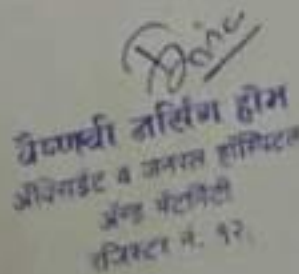 वैष्णवी नर्सिंग होम
ॲक्सिडेंट व जनरल हॉस्पिटल
ॲन्ड मॅटर्निटी
रजिस्टर नं. १२